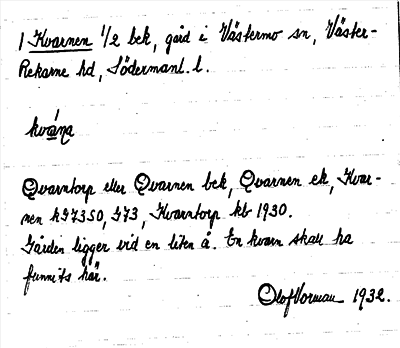 1 Kvarnen 1/2 bek, gård i Västermo sn, Väster-
Rekarne hd, Södermanl. l.
kvána
Qvarntorp eller Qvarnen bek, Qvarnen ek, Kvar-
nen kG7350, J73, Kvarntorp kb 1930.
Gården ligger vid en liten å. En kvarn skall ha
funnits här.
Olof Vorman 1932.